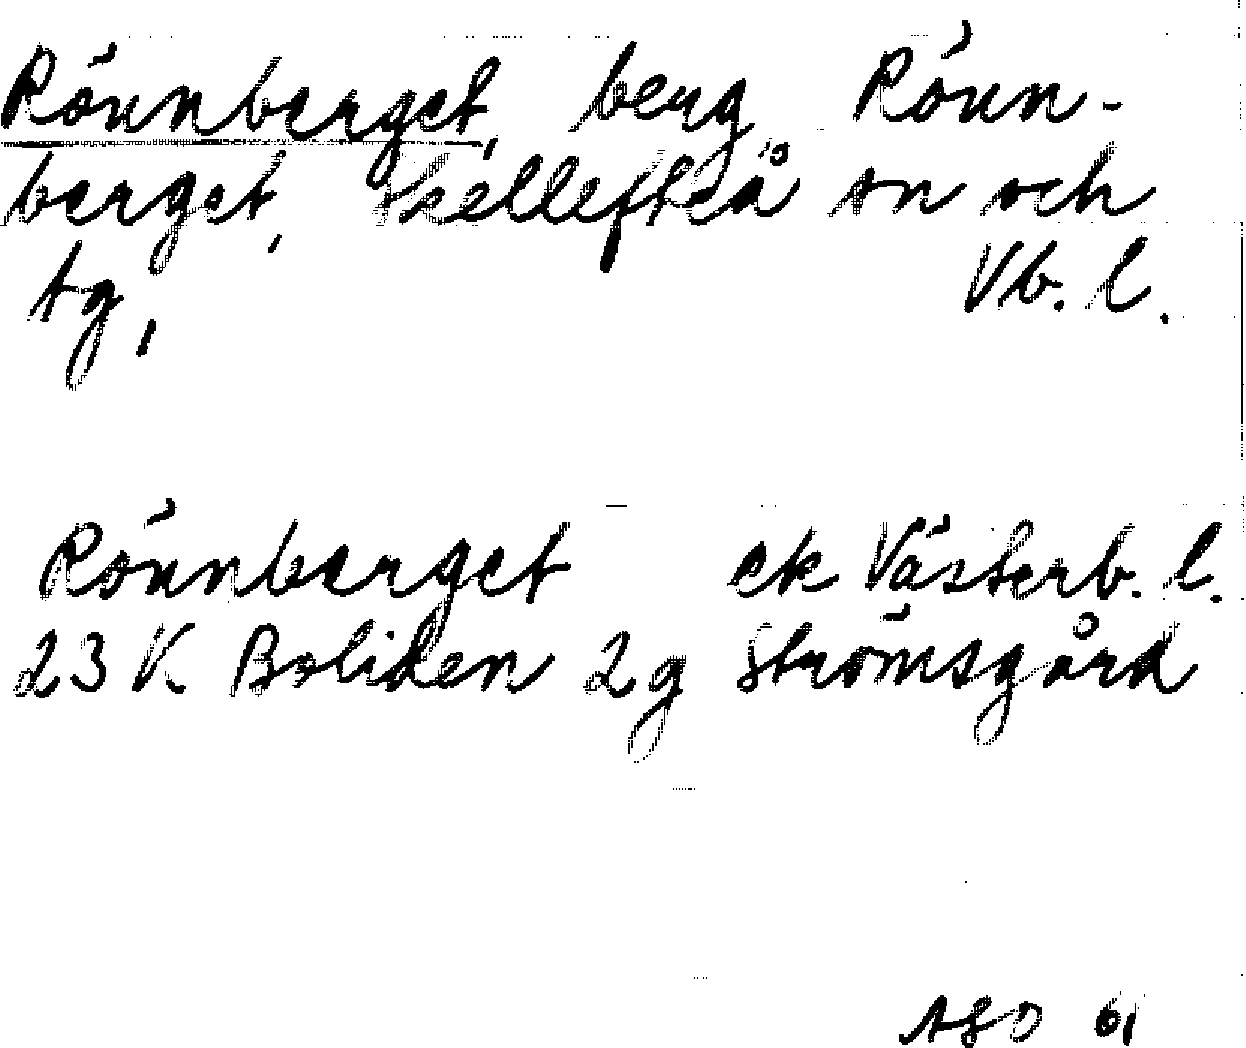 Rönnberget, berg, Rönn-
berget, Skellefteå sn och
tg, Vb. l.
Rönnberget ek Västerb. l.
23 K Boliden 2g Strömsgård
61